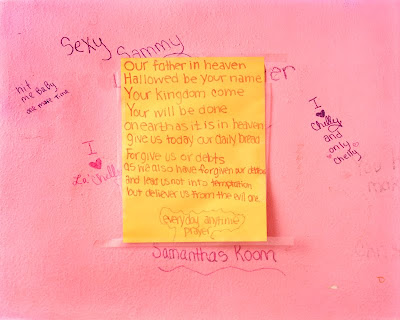 Sexy Sammy
hit
me Baby
one more time
Our father in heaven
Hallowed be your name
Your kingdom come
Your will be done
on earth as it is in heaven
give us today our daily bread
forgive us or debts
as we also have forgiven our debtors
and lead us not into temptation
but deliever us from the evil one.
everyday anytime
prayer
I
La'Chelly
I
Chelly
and
only
chelly
Samanthas Room